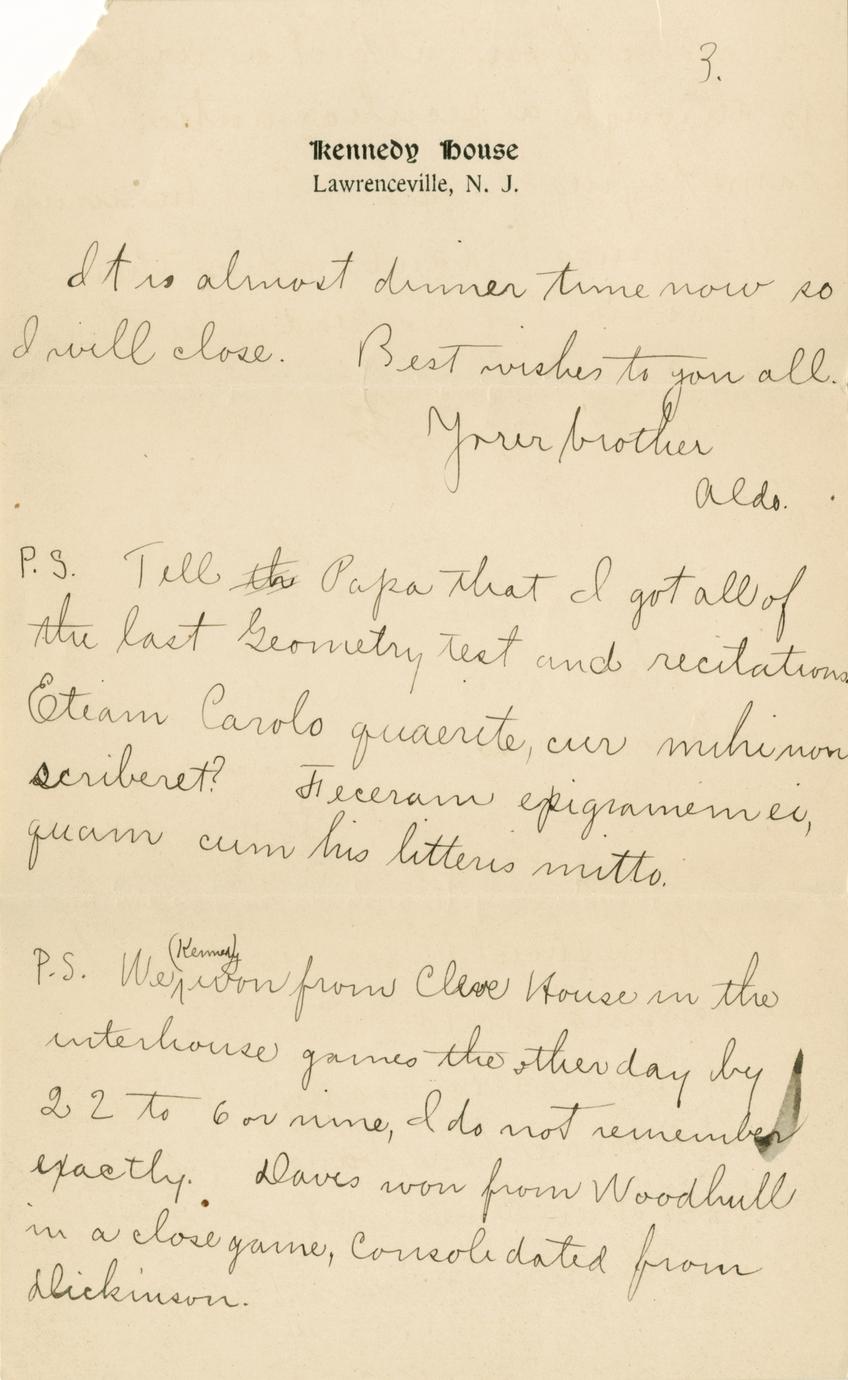 3.
Kennedy House
Lawrenceville, N. J.
It is almost dinner time now so
I will close. Best wishes to you all.
Your brother
Aldo.
P.S. Tell the Papa that I got all of
the last Geometry test and recitations
Etiam Carolo quaerite, cur mihi non
scriberet? Feceram epigramem ei,
quam cum his litteris mitto.
(Kennedy)
P.S. We, won from Cleve House in the
interhouse games the other day by
22 to 6 or nine, I do not remember
exactly. Davis won from Woodhull
in a close game, Consolidated from
Dickinson.